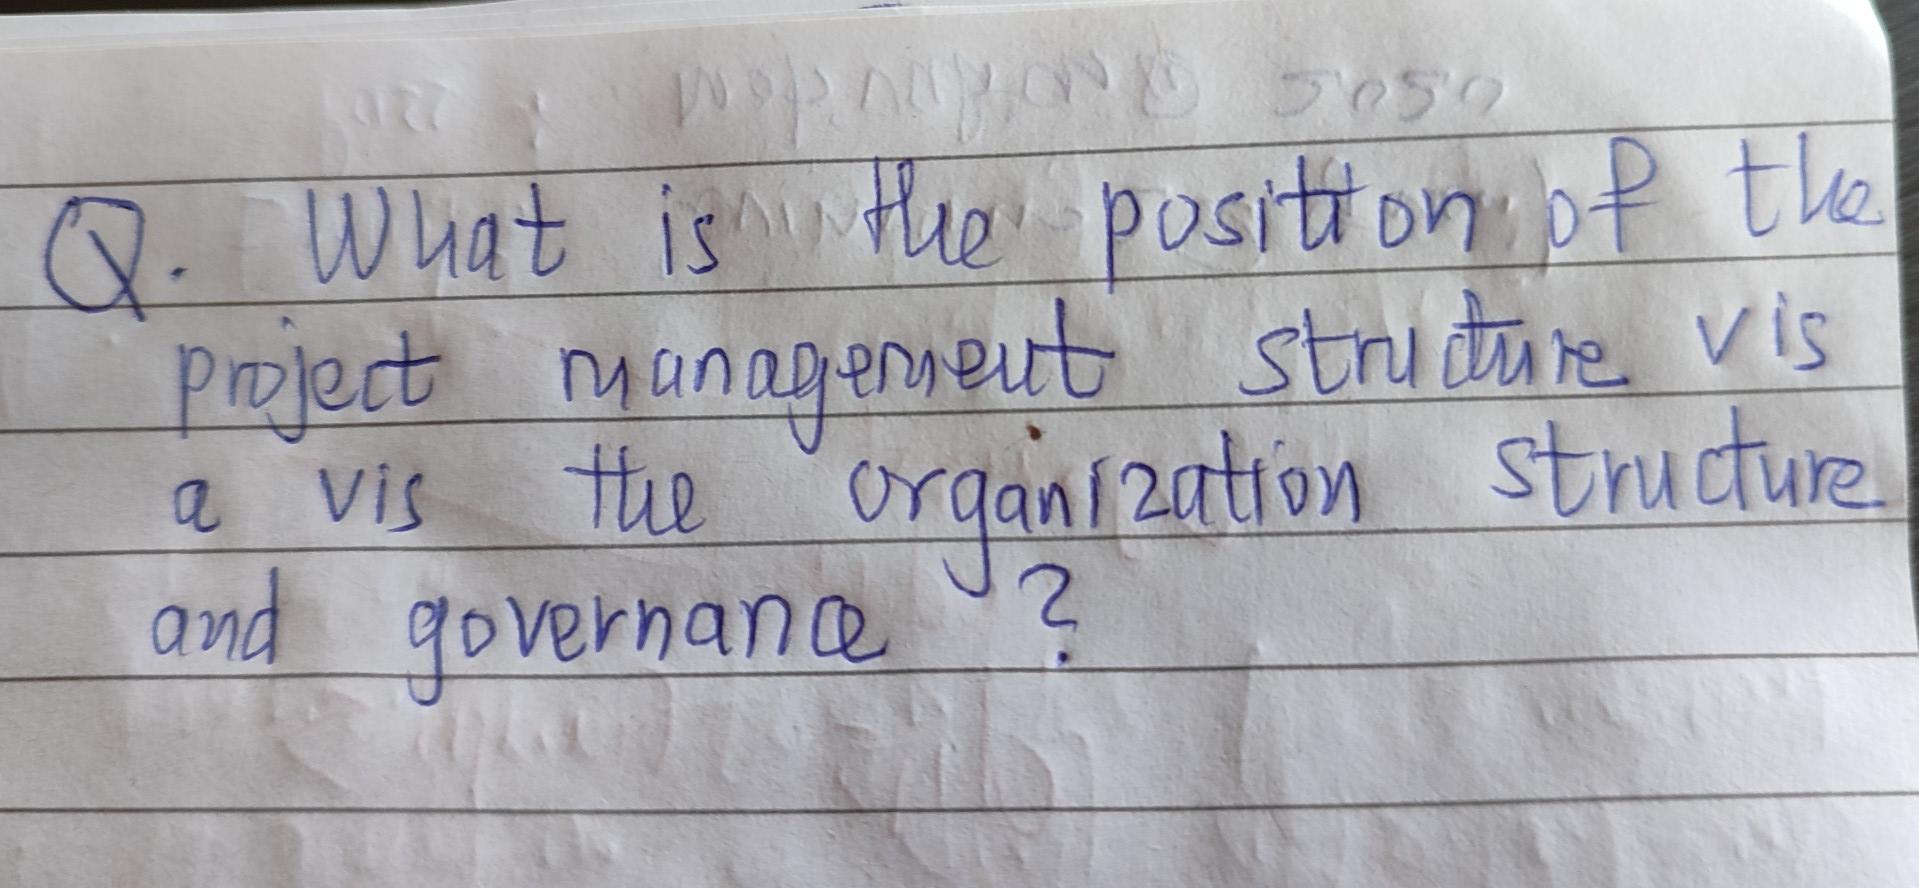 Q. What is the position of the
project management structure vis
a vis the organization structure
and governance ?